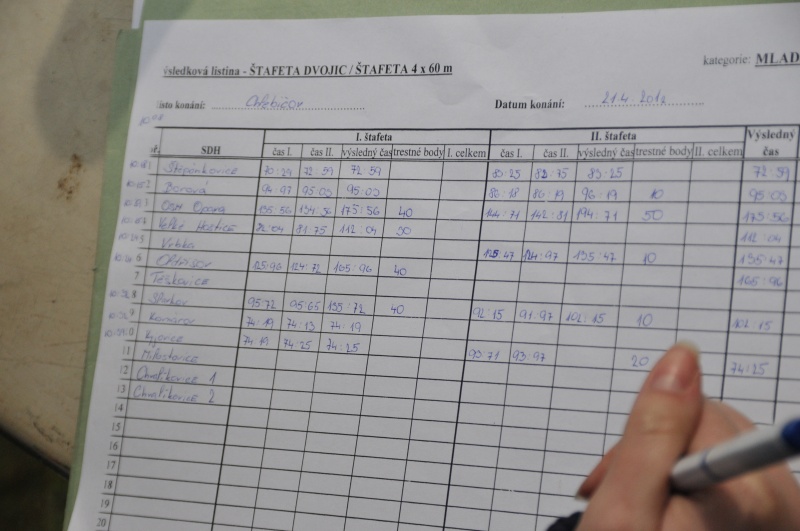 výsledková listina - ŠTAFETA DVOJIC / ŠTAFETA 4 x 60 m kategorie: MLAD
ísto konání: Datum konání: 21.4. 2012
I. štafeta II. štafeta Výsledný
SDH čas I. čas II. výsledný čas trestné body I. celkem čas I. čas II. výsledný čas trestné body II. celkem čas
Štěpánkovice 70:29 72:59 72:59 83:25 82:75 83:25 72:59
2 Bohová 94:97 95:03 95:03 86:18 86:19 96:19 10 95:03
3 OSH Opava 135:56 134:56 175:56 40 144:71 142:81 194:71 50 175:56
Velké Hoštice 82:04 81:75 112:04 30 112:04
Vrbka 125:47 124:97 135:47 10 135:47
6 125:96 124:72 165:96 40 165:96
7 Těškovice
8 95:72 95:66 135:72 40 92:15 91:97 102:15 10 102:15
9 Komárov 74:19 74:13 74:19
10 Kyjovice 74:19 74:25 74:25 93:71 93:97 20 74:25
11 Milostovice
12 Chvalíkovice 1
13 Chvalíkovice 2
14
15
16
17
18
19
20